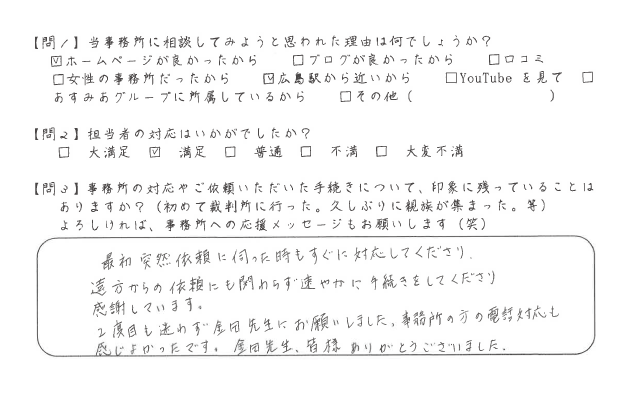 【問1】当事務所に相談してみようと思われた理由は何でしょうか？
☑ホームページが良かったから　□ブログが良かったから　□口コミ
□女性の事務所だったから　☑広島駅から近いから　□YouTube を見て　□
あすみあグループに所属しているから　□その他（　　　　　　　　）
【問2】担当者の対応はいかがでしたか？
□　大満足　☑　満足　□　普通　□　不満　□　大変不満
【問3】事務所の対応やご依頼いただいた手続きについて、印象に残っていることは
ありますか？（初めて裁判所に行った。久しぶりに親族が集まった。等）
よろしければ、事務所への応援メッセージもお願いします（笑）
最初 突然依頼に伺った時もすぐに対応してくださり、
遠方からの依頼にも関わらず速やかに手続きをしてくださり
感謝しています。
2度目も迷わず金田先生にお願いしました、事務所の方の電話対応も
感じよかったです。金田先生、皆様 ありがとうございました。